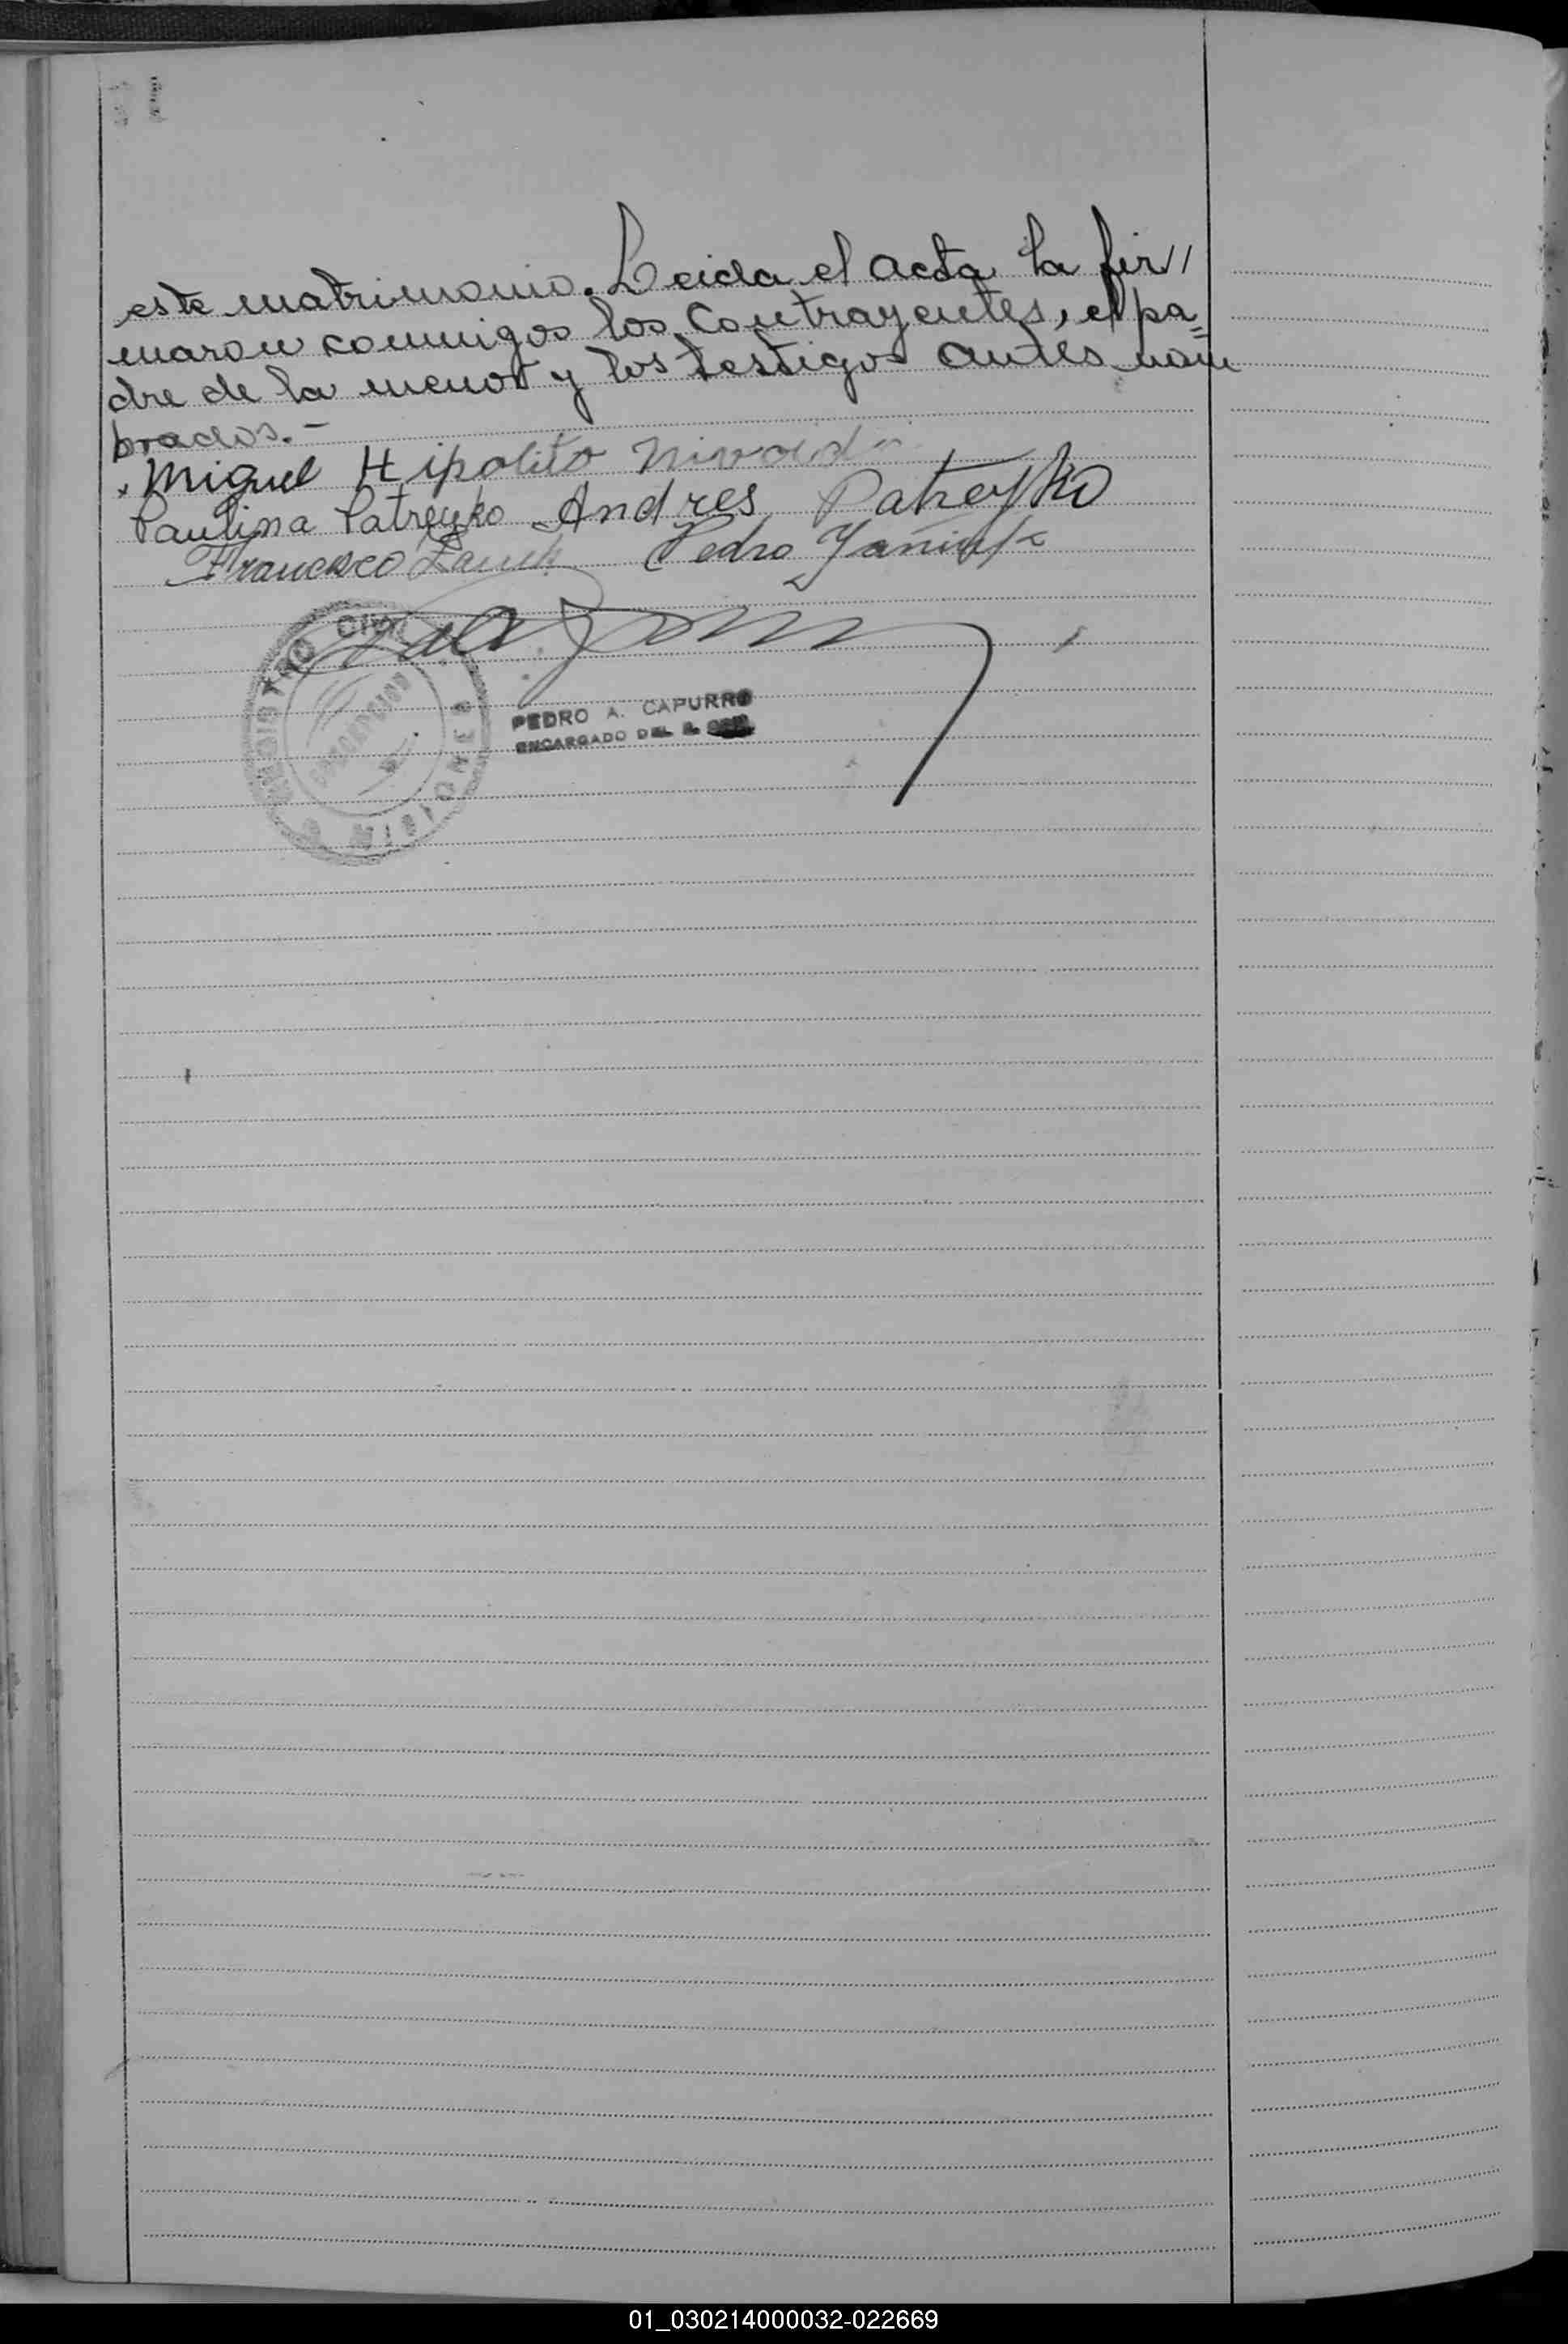 este matrimonio. Leida el acta la fir//
maron conmigos los contrayentes, el pa=
dre de la menor y los testigos antes nom
brados.-
Miguel Hipolito
Paulina Patreyko Andres Patreyko
Francisco Pedro
REGISTRO CIVIL
MISIONES
PEDRO A. CAPURRO
ENCARGADO DEL R.
01_030214000032-022669